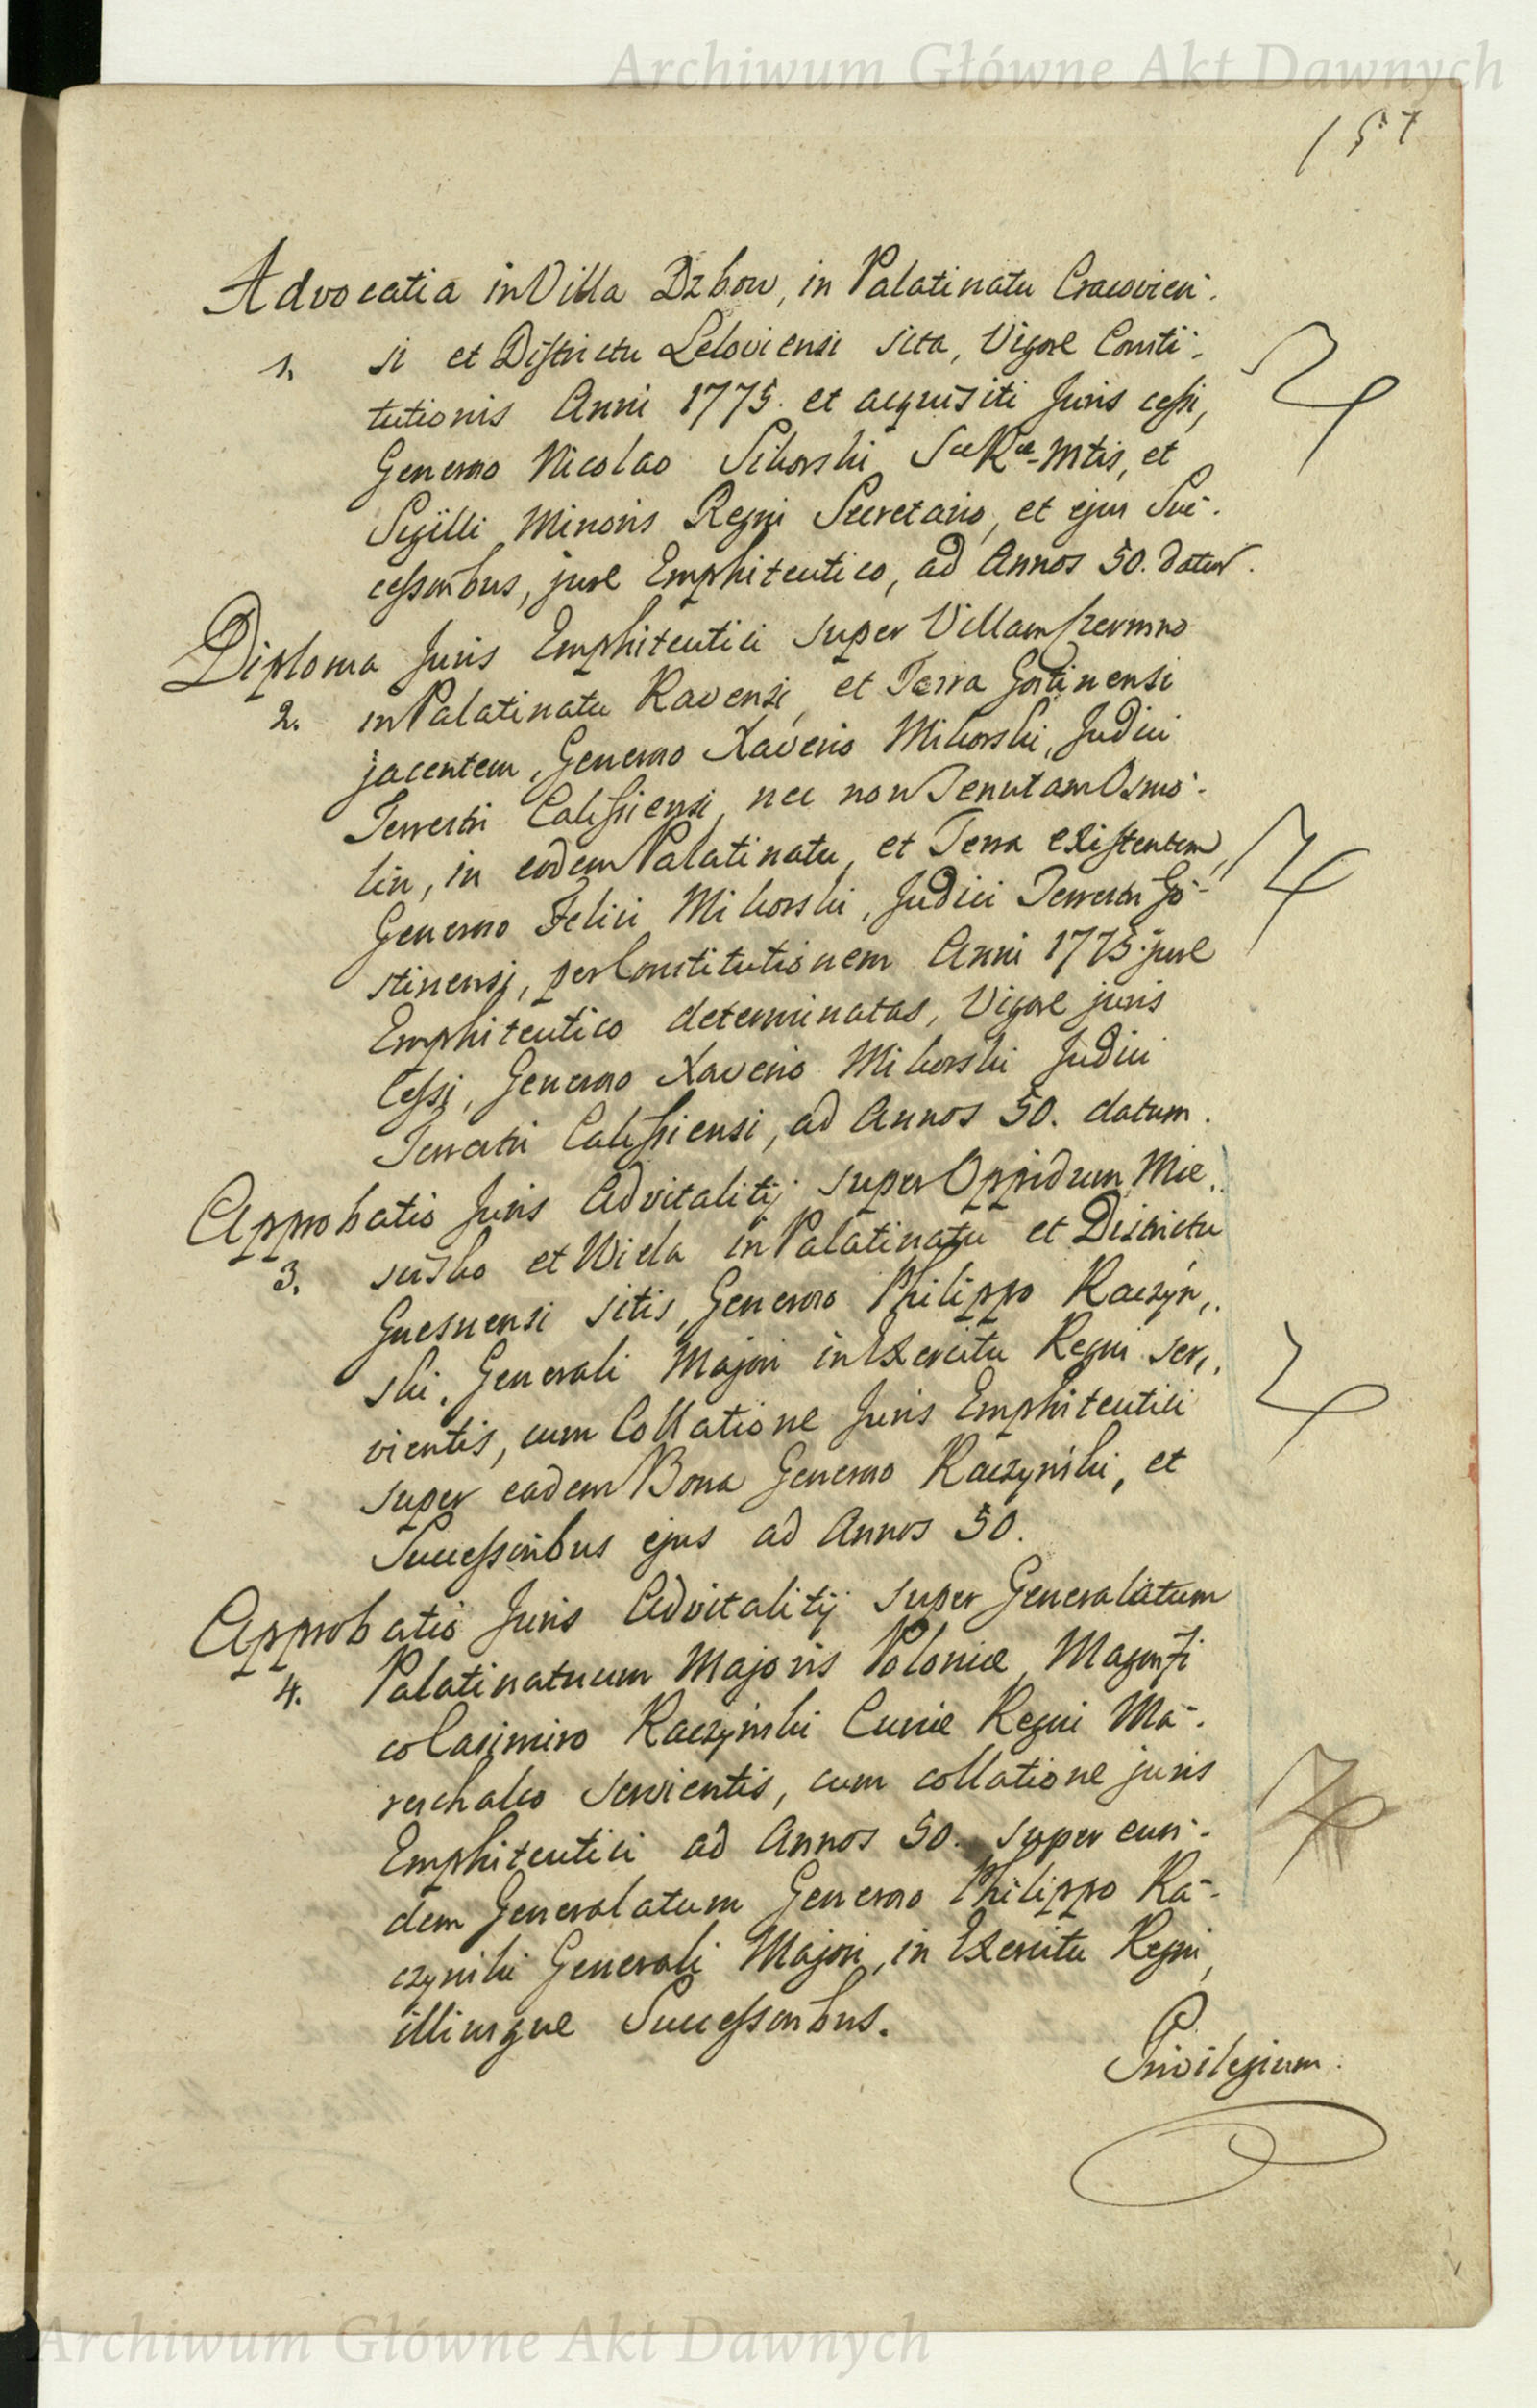 Archiwum Główne Akt Dawnych
157
Advocatia in Villa Dzbow, in Palatinatu Cracovien-
1. si et Districtu Leloviensi sita, Vigore Consti-
tutionis Anni 1775. et acquisiti Juris cessi,
Generoso Nicolao Sikorski SaeRae-Mtis, et
Sigilli Minoris Regni Secretario, et ejus Suc-
cessoribus, jure Emphiteutico, ad Annos 50. datur.
Diploma Juris Emphiteutici super Villam
2. in Palatinatu Ravensi, et Terra Gostinensi
jacentem, Generoso Xaverio Mikorski, Judici
Terrestri Calissiensi, nec non Tenutam Osmo-
lin, in eodem Palatinatu, et Terra existentem,
Generoso Felici Mikorski, Judici Terrestri Go-
stinensi, per Constitutionem Anni 1775. jure
Emphiteutico determinatas, Vigore juris
Cessi, Generoso Xaverio Mikorski Judici
Terrestri Calissiensi, ad Annos 50. datum.
Approbatio Juris Advitalitij super Oppidum Mie,,
3. scisko et Wiela in Palatinatu et Districtu
Gnesnensi sitis, Generoso Philippo Raczyn,,
ski, Generali Majori in Exercitu Regni ser,,
vientis, cum Collatione Juris Emphiteutici
super eadem Bona Generoso Raczyński, et
Successoribus ejus ad Annos 50.
Approbatio Juris Advitalitij super Generalatum
4. Palatinatuum Majoris Poloniae, Magnifi
co Casimiro Raczyński Curiae Regni Ma-
reschalco servientis, cum collatione juris
Emphiteutici ad Annos 50. super eun-
dem Generalatum Generoso Philippo Ra-
czyński Generali Majori, in Exercitu Regni,
illiusque Successoribus.
Privilegium.
Archiwum Główne Akt Dawnych